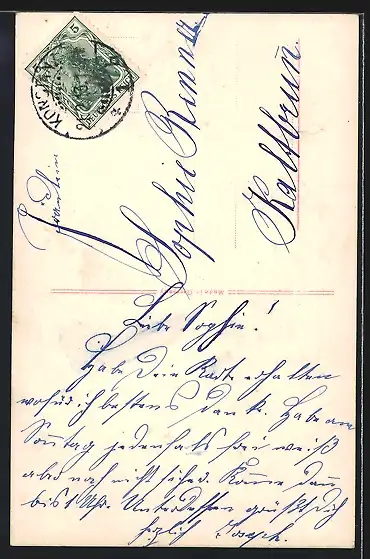 KONSTANZ
5
Fräulein
Sophie Rinn
Kaltbrunn
Liebe Sophie!
Habe Dein Karte erhalten
wofür ich bestens danke. Habe am
Sonntag jedenfals frei weiß
aber noch nicht sicher. Komme dann
bis 1 Uhr. Unterdessen grüßt Dich
herzlich Joseph.